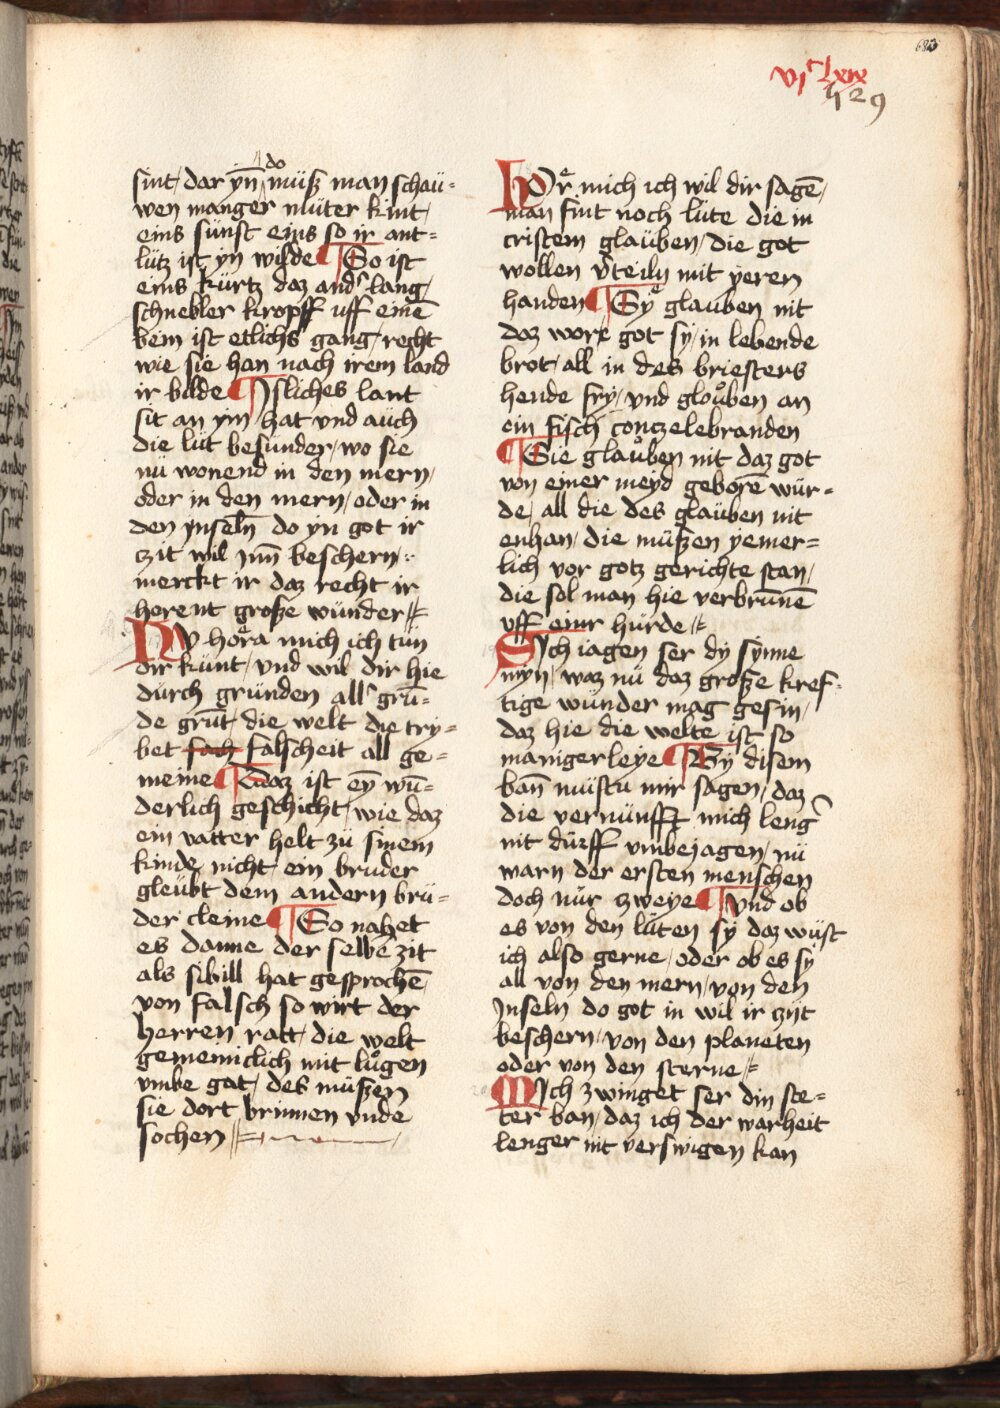 683
vjᶜ lxix
529
do
sint / dar yn̄ müsz man schaü=
wen manger müter kint /
eins sünst eins so ir ant=
lütz ist yn wilde ¶ So ist
eins kürtz daz and͛ lang /
schnebler kropff uff einē
bein ist etlichs gang / recht
wie sie han nach irem land
ir bilde ¶ Isliches lant
sit an ym hat vnd auch
die lüt besunder / wo sie
nü wonend in den mern /
oder in den mern / oder in
den ynseln do yn got ir
zit wil ynn beschern /
merckt ir daz recht ir
herent grosze wünder //
NV hoͤra mich ich tün
dir künt / vnd wil dir hie
durch gründen all͛ grū=
de grūt / die welt die try=
bet sach falscheit all ge=
meine ¶ Daz ist ey̅ wū=
derlich geschicht / wie daz
ein vatter helt zü sinem
kinde nicht ein bruder
gleübt dem andern brü=
der cleine ¶ So nahet
es danne der selbe zit
als sibill hat gesprochē /
von falsch so wirt der
herren ratt / die welt
gemeinclich mit luͦgen
vmbe gat / des müszen
sie dort brinnen vnde
sochen //
HOͤr mich ich wil dir sagē /
man fint noch lüte die in
cristem glaüben / die got
wollen v͛teiln mit yeren
handen ¶ Syͤ glauben nit
daz worx got sy / in lebende
brot / all in des briesters
hende fry / vnd gloͧben an
ein fisch conczelebranden
¶ Sie glaüben nit daz got
von einer meyd geborē wür=
de / all die des glaüben nit
enhan / die müszen yemer=
lich vor gotz gerichte stan /
die sol man hie verbrunnē
vff einr hürde //
SIch iagen ser dy synne
myn / waz nü daz grosze kref=
tige wunder mag gesin /
daz hie die welte ist so
manigerleye ¶ By disem
ban̄ müstu mir sagen / daz
die vernünfft mich leng͛
nit dürff vmbejagen / nü
warn der ersten menschen
doch nür zweye ¶ vnd ob
es von den lüten sy daz wüst
ich also gerne / oder ob es sy
all von den mern / von den
Inseln do got in wil ir zijt
beschern / von den planeten
oder von den sterne //
MIch zwinget ser din ste=
ter ban / daz ich der warheit
lenger nit verswigen kan